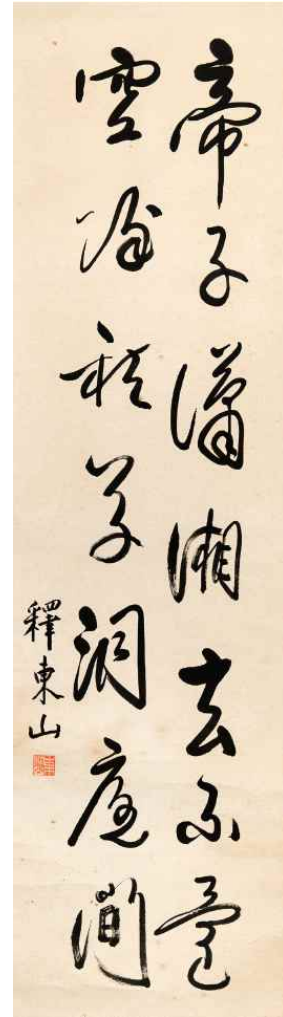 帝子瀟湘去不還
空餘秋草洞庭間
釋東山